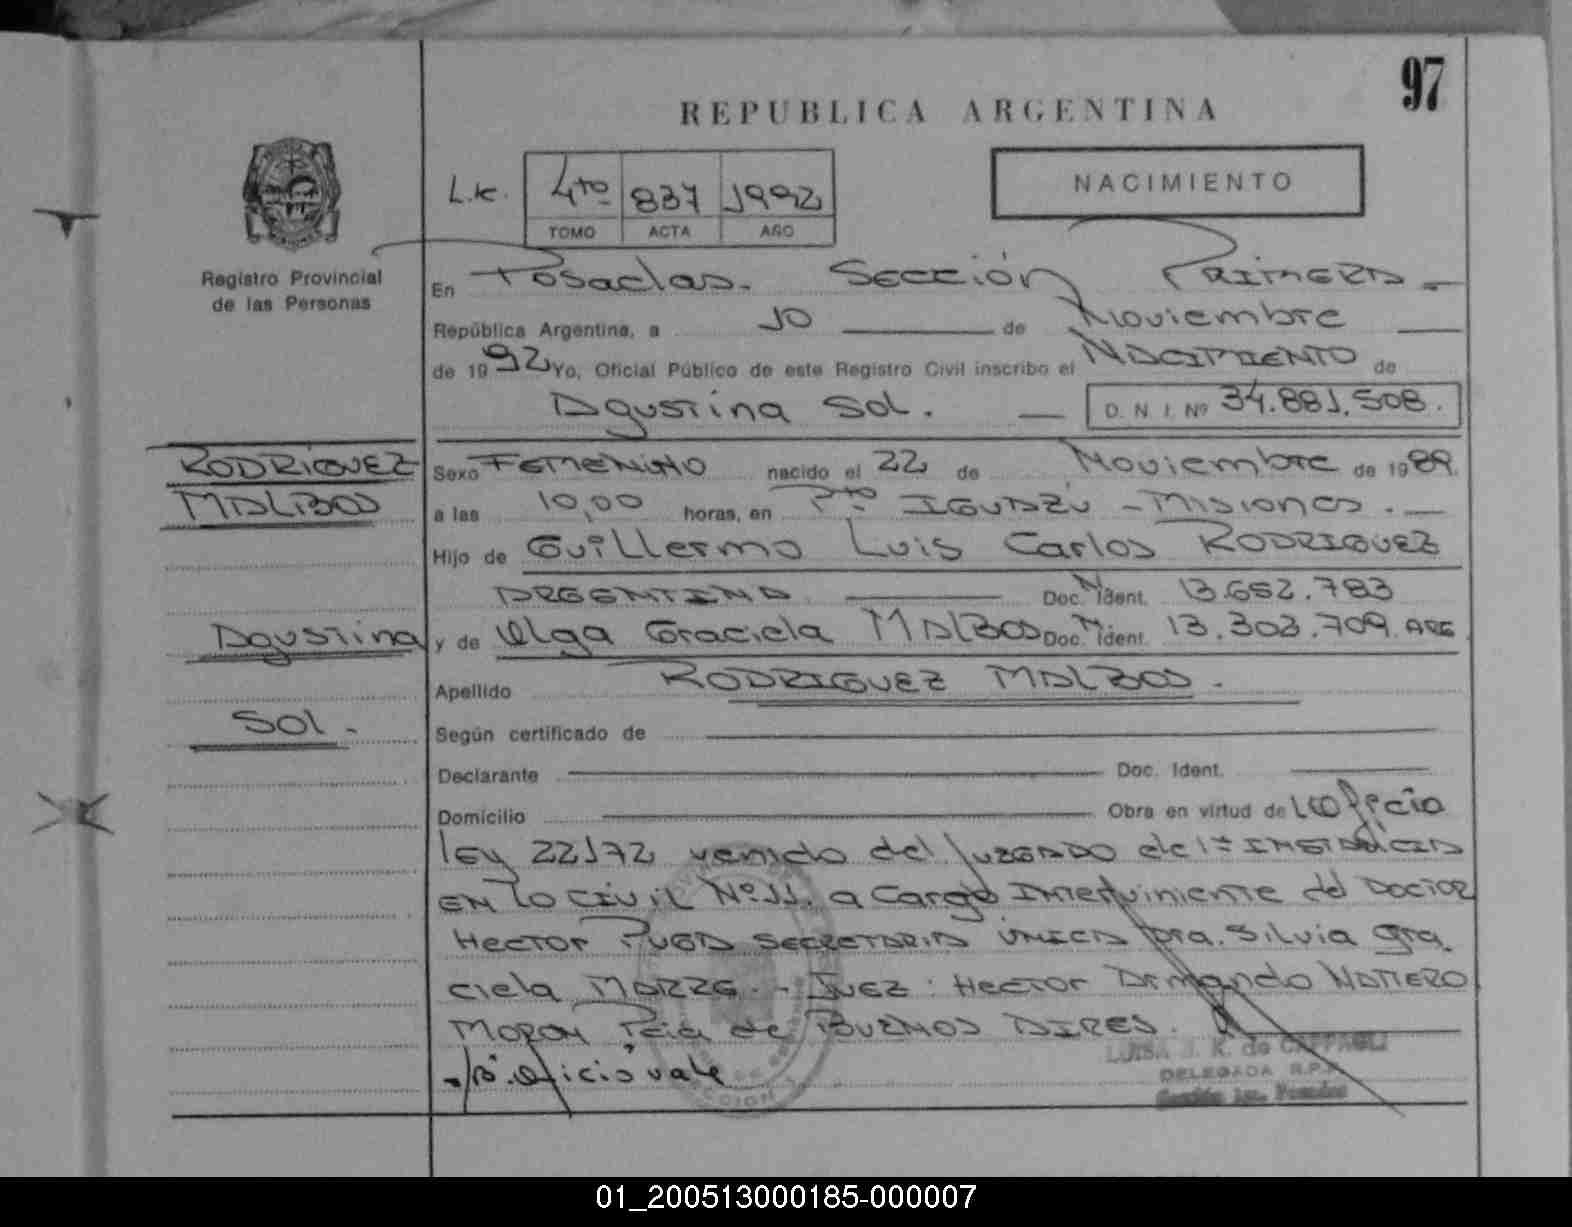 97
REPUBLICA ARGENTINA
L.C. 4to 837 1992
TOMO ACTA AÑO
NACIMIENTO
Registro Provincial
de las Personas
En Posadas. Sección Primera
República Argentina, a 10 de Noviembre
de 1992 Yo, Oficial Público de este Registro Civil inscribo el NACIMIENTO de
Agustina Sol. D. N. I. Nº 34.881.508.
RODRIGUEZ
MALBOS
Agustina
Sol.
Sexo Femenino nacido el 22 de Noviembre de 1989.
a las 10,00 horas, en Pto IGUAZÚ - Misiones.
Hijo de Guillermo Luis Carlos RODRIGUEZ
ARGENTINA Doc. N Ident. 13.652.783
y de Olga Graciela MALBOS Doc. N Ident. 13.303.709. ARG
Apellido RODRIGUEZ MALBOS.
Según certificado de
Declarante Doc. Ident.
Domicilio Obra en virtud de oficio
ley 22172 venido del Juzgado de 1ª INSTANCIA
EN lo CIVIL Nº 11. a Cargo Interviniente del Doctor
Hector PUGA SECRETARIA UNICA Dra. Silvia Gra
ciela MAZZE.- Juez: Hector Armando NATIERO
MORON Pcia de BUENOS AIRES.
Oficio vale
LUISA K. de CAPPAGLI
DELEGADA R.P.P.
Sección 1ra. Posadas
01_200513000185-000007